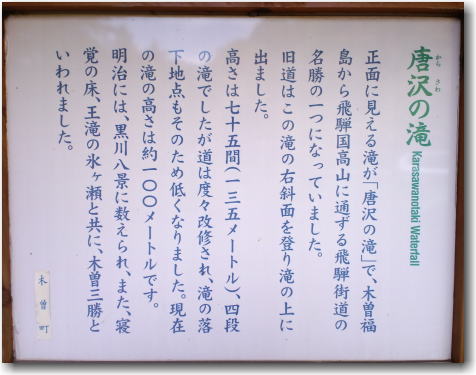 唐沢の滝
から さわ
Karasawanotaki Waterfall
正面に見える滝が「唐沢の滝」で、木曽福
島から飛騨国高山に通ずる飛騨街道の
名勝の一つになっていました。
旧道はこの滝の右斜面を登り滝の上に
出ました。
高さは七十五間(一三五メートル)、四段
の滝でしたが道は度々改修され、滝の落
下地点もそのため低くなりました。現在
の滝の高さは約一〇〇メートルです。
明治には、黒川八景に数えられ、また、寝
覚の床、王滝の氷ヶ瀬と共に、木曽三勝と
いわれました。
木曽町